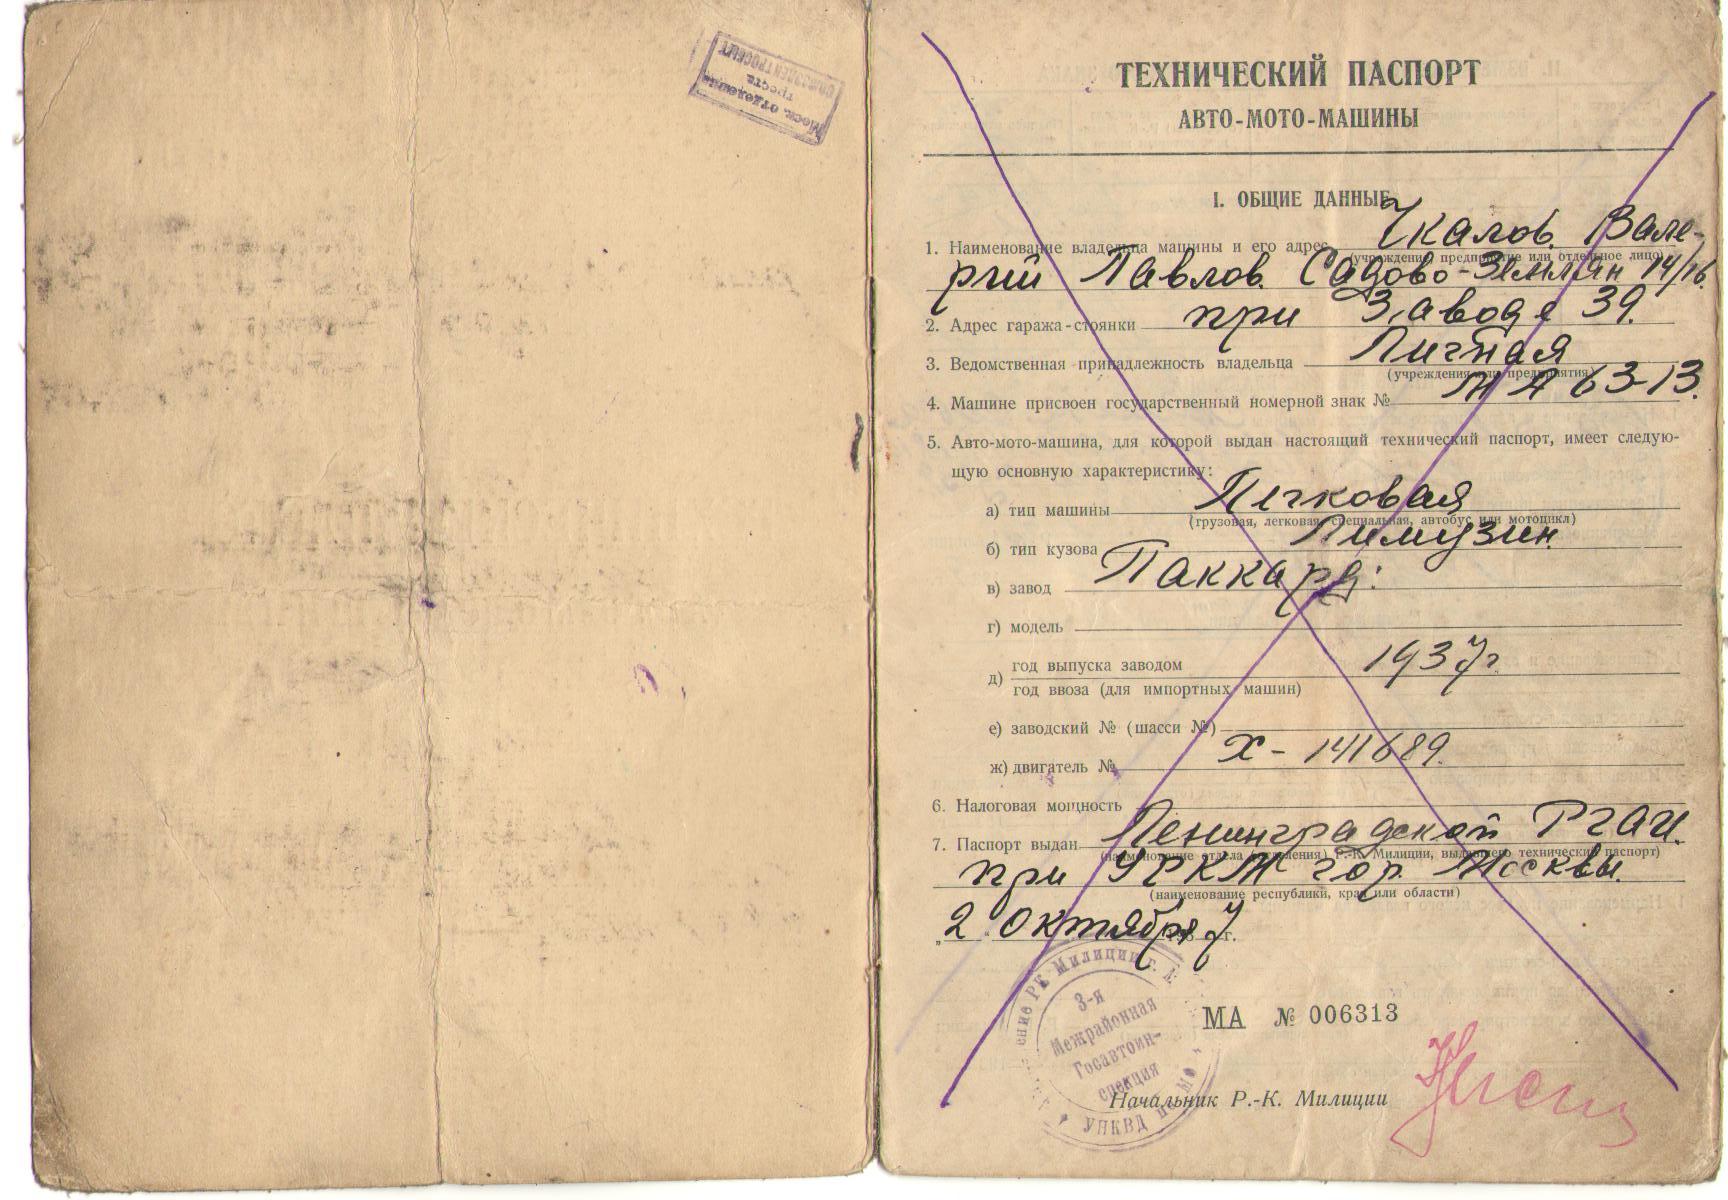 Моск. отделение
треста
СОЮЗЗОЛЕНТРОСБЫТ
ТЕХНИЧЕСКИЙ ПАСПОРТ
АВТО-МОТО-МАШИНЫ
I. ОБЩИЕ ДАННЫЕ
1. Наименование владельца машины и его адрес Чкалов Вале-
(учреждение предприятие или отдельное лицо)
рий Павлов. Садово-Землян 14/16.
2. Адрес гаража-стоянки при Заводе 39.
3. Ведомственная принадлежность владельца Личная
(учреждения или предприятия)
4. Машине присвоен государственный номерной знак № МА 63-13.
5. Авто-мото-машина, для которой выдан настоящий технический паспорт, имеет следую-
щую основную характеристику:
а) тип машины Легковая
(грузовая, легковая, специальная, автобус или мотоцикл)
б) тип кузова Лимузин
в) завод Паккард:
г) модель
д) год выпуска заводом 1937г
год ввоза (для импортных машин)
е) заводский № (шасси №)
ж) двигатель № Х-141689.
6. Налоговая мощность
7. Паспорт выдан Ленинградской РГАИ
(наименование отдела (отделения) Р.-К. Милиции, выдавшего технический паспорт)
при УРКМ гор. Москвы.
(наименование республики, края или области)
„2“ октября 1937 г.
МА № 006313
Начальник Р.-К. Милиции
РК Милиции г.
3-я
Межрайонная
Госавтоин-
спекция
УНКВД по МО